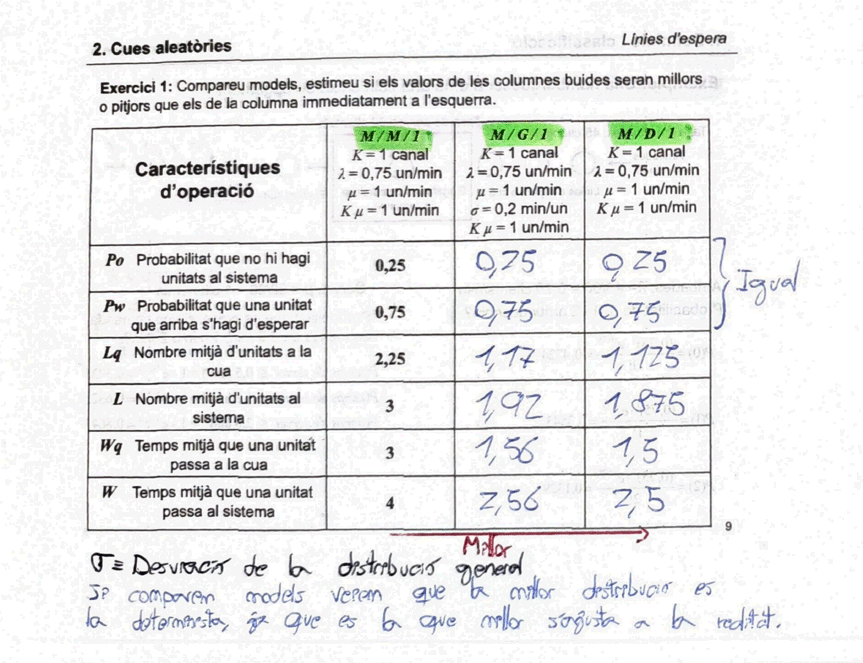 2. Cues aleatòries
Línies d'espera
Exercici 1: Compareu models, estimeu si els valors de les columnes buides seran millors
o pitjors que els de la columna immediatament a l'esquerra.
Característiques
d'operació
M/M/1
K = 1 canal
λ = 0,75 un/min
μ = 1 un/min
K μ = 1 un/min
M/G/1
K = 1 canal
λ = 0,75 un/min
μ = 1 un/min
σ = 0,2 min/un
K μ = 1 un/min
M/D/1
K = 1 canal
λ = 0,75 un/min
μ = 1 un/min
K μ = 1 un/min
Po Probabilitat que no hi hagi
unitats al sistema
0,25 0,25 0,25
Pw Probabilitat que una unitat
que arriba s'hagi d'esperar
0,75 0,75 0,75
Igual
Lq Nombre mitjà d'unitats a la
cua
2,25 1,17 1,125
L Nombre mitjà d'unitats al
sistema
3 1,92 1,875
Wq Temps mitjà que una unitat
passa a la cua
3 1,56 1,5
W Temps mitjà que una unitat
passa al sistema
4 2,56 2,5
9
Millor
σ ≡ Desviació de la distribució general
Si comparem models veiem que la millor distribució es
la determinista, ja que es la que millor s'ajusta a la realitat.